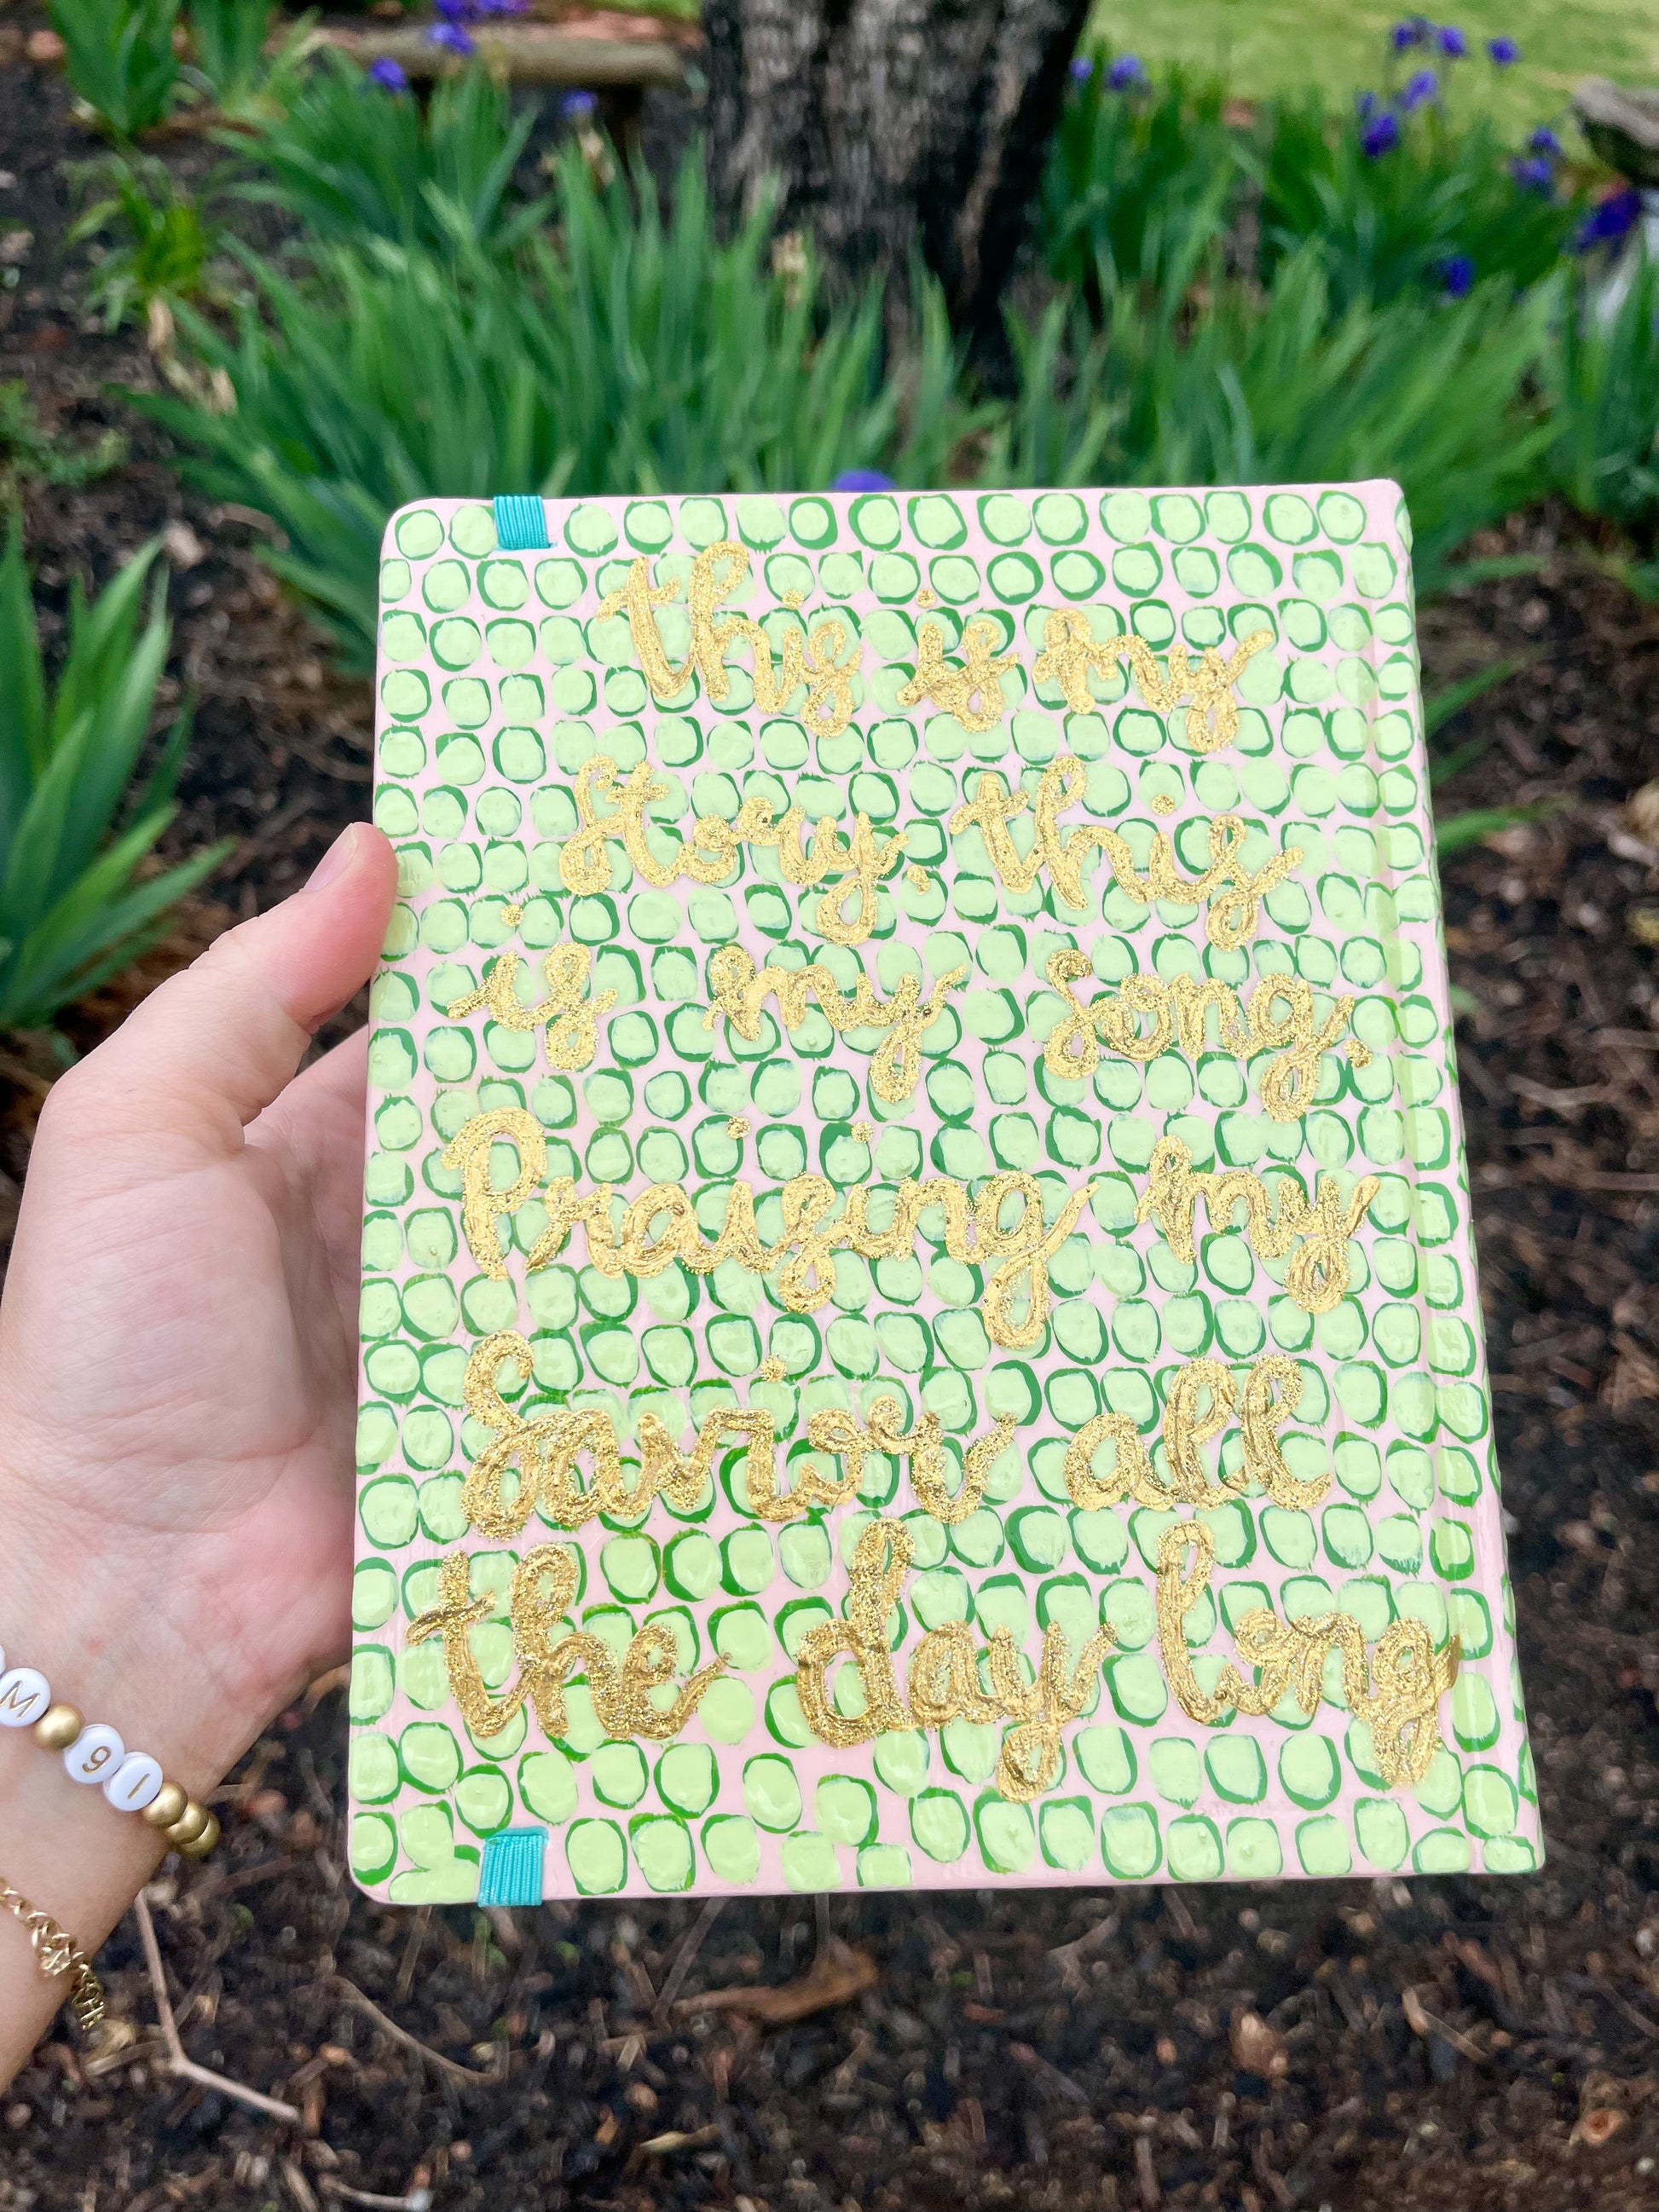 this is my
story, this
is my song,
Praising my
Savior all
the day long
M 91